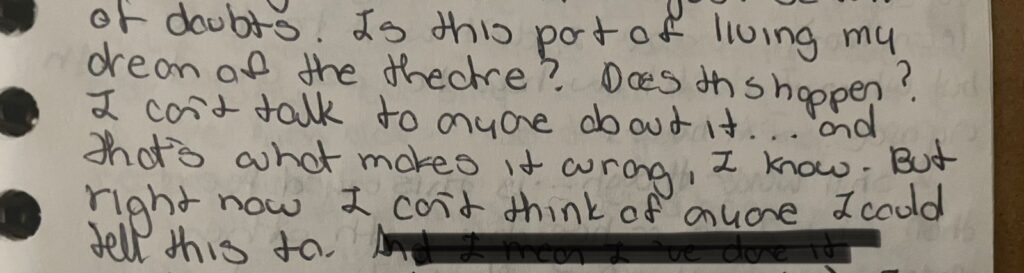 of doubts. Is this part of living my
dream of the theatre? Does this happen?
I can't talk to anyone about it... and
that's what makes it wrong, I know. But
right now I can't think of anyone I could
tell this to. And I mean I've done it